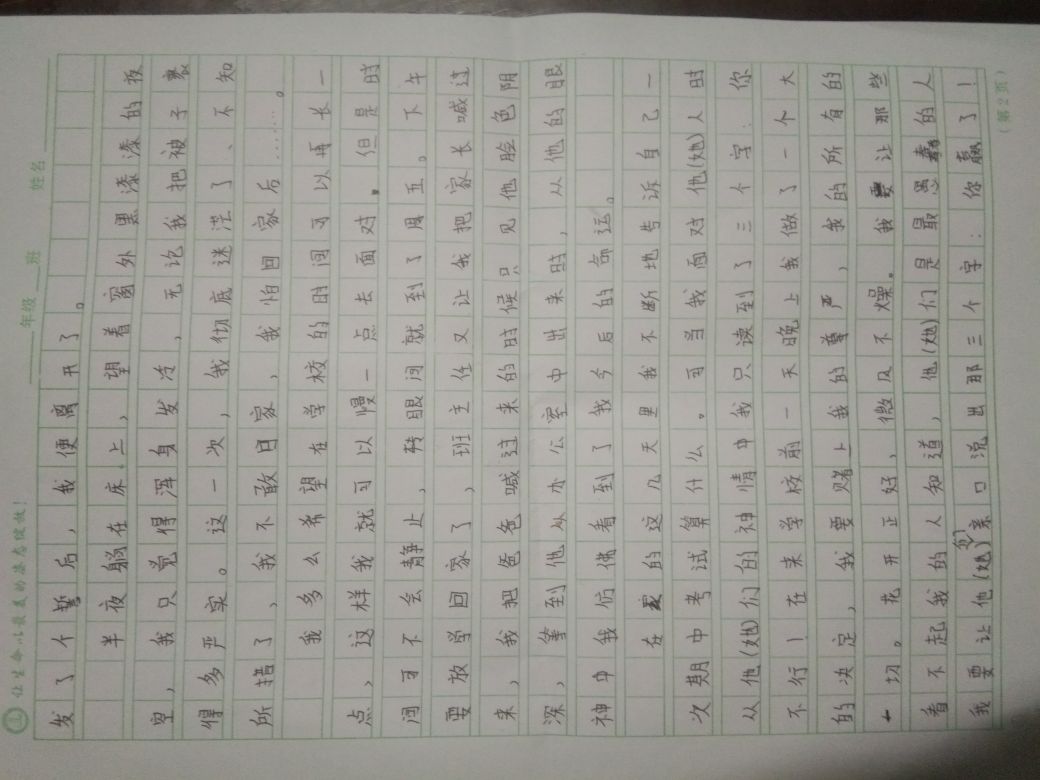 让生命以最美的姿态绽放!
年级 班 姓名
发了个誓后,我便离开了。
半夜躺在床上,望着窗外黑漆漆的夜
空,我只觉得浑身发冷,无论我把被子裹
得多严实。这一次,我彻底迷茫了、不知
所措了,我不敢回家,我怕回家后……。
我多么希望在学校的时间可以再长一
点,这样我就可以慢一点去面对,但是时
间可不会静止,转眼间就到了周五。下午
要放学回家了,班主任又让我把家长喊过
来,我把爸爸喊过来的时候只见他脸色阴
深,等到他从办公室中出来时,从他的眼
神中我仿佛看到了我今后的命运。
在家的这几天里我不断地告诉自己一
次期中考试算什么。可当我面对他(她)人时
从他(她)们的神情中我只读到了三个字:你
不行!在来学校前一天晚上我做了一个大
的决定,我要赌上我的尊严,我的所有的
一切。花开正好,微风不燥。我要让那些
看不起我的人知道,他(她)们是最愚蠢的人
我要让他(她)们亲口说出那三个字:你赢了!
(第2页)